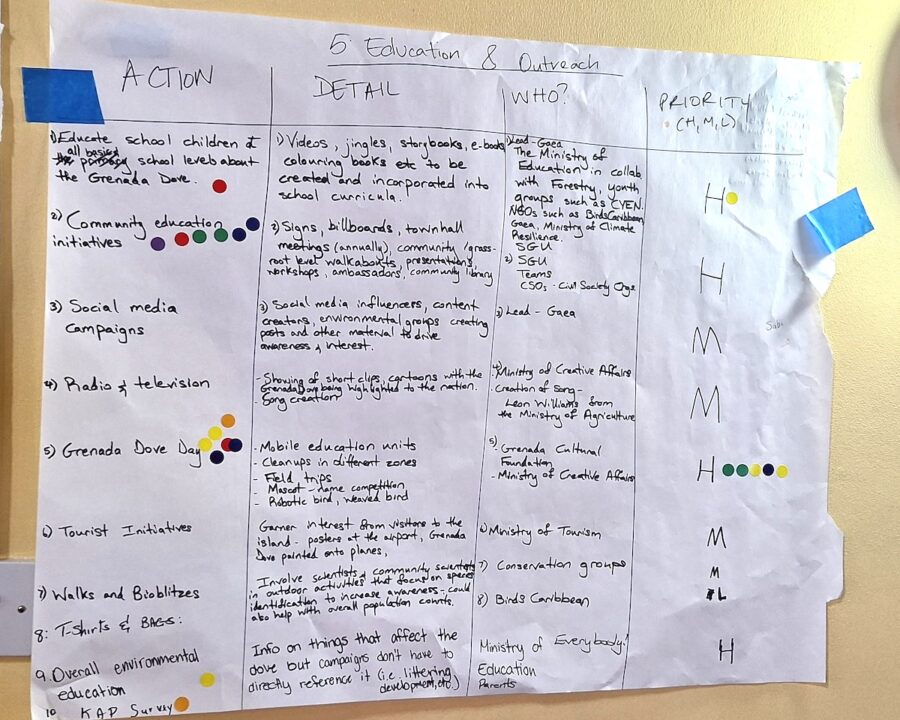 5. Education & Outreach
ACTION
DETAIL
WHO?
PRIORITY
(H, M, L)
1) Educate school children &
all basics
primary school levels about
the Grenada Dove.
1) Videos, jingles, storybooks, e-books
colouring books etc to be
created and incorporated into
school curricula.
1) Lead - Gaea
The Ministry of
Education in collab
with Forestry, youth
groups such as CYEN.
NGOs such as BirdsCaribbean
Gaea, Ministry of Climate
Resilience.
SGU
H
2) Community education
initiatives
2) Signs, billboards, townhall
meetings (annually), community/grass-
root level walkabouts, presentations,
workshops, ambassadors, community library
2) SGU
Teams
CSOs - Civil Society Orgs
H
3) Social media
campaigns
3) Social media influencers, content
creators, environmental groups creating
posts and other material to drive
awareness & interest.
3) Lead - Gaea
M
4) Radio & television
- Showing of short clips, cartoons with the
Grenada Dove being highlighted to the nation.
- Song creation
4) Ministry of Creative Affairs
- creation of Song -
Leon Williams from
the Ministry of Agriculture
M
5) Grenada Dove Day
- Mobile education units
- Cleanups in different zones
- Field trips
- Mascot - name competition
- Robotic bird, weaved bird
5) - Grenada Cultural
Foundation
- Ministry of Creative Affairs
H
6) Tourist Initiatives
Garner interest from visitors to the
island - posters at the airport, Grenada
Dove painted onto planes,
6) Ministry of Tourism
M
7) Walks and Bioblitzes
Involve scientists & community scientists
in outdoor activities that focus on species
identification to increase awareness - could
also help with overall population counts.
7) Conservation groups
M
8: T-Shirts & BAGS:
8) Birds Caribbean
L
9. Overall environmental
education
Info on things that affect the
dove but campaigns don't have to
directly reference it (i.e. littering,
development, etc.)
Ministry of Everybody!
Education
Parents
H
10 KAP Survey